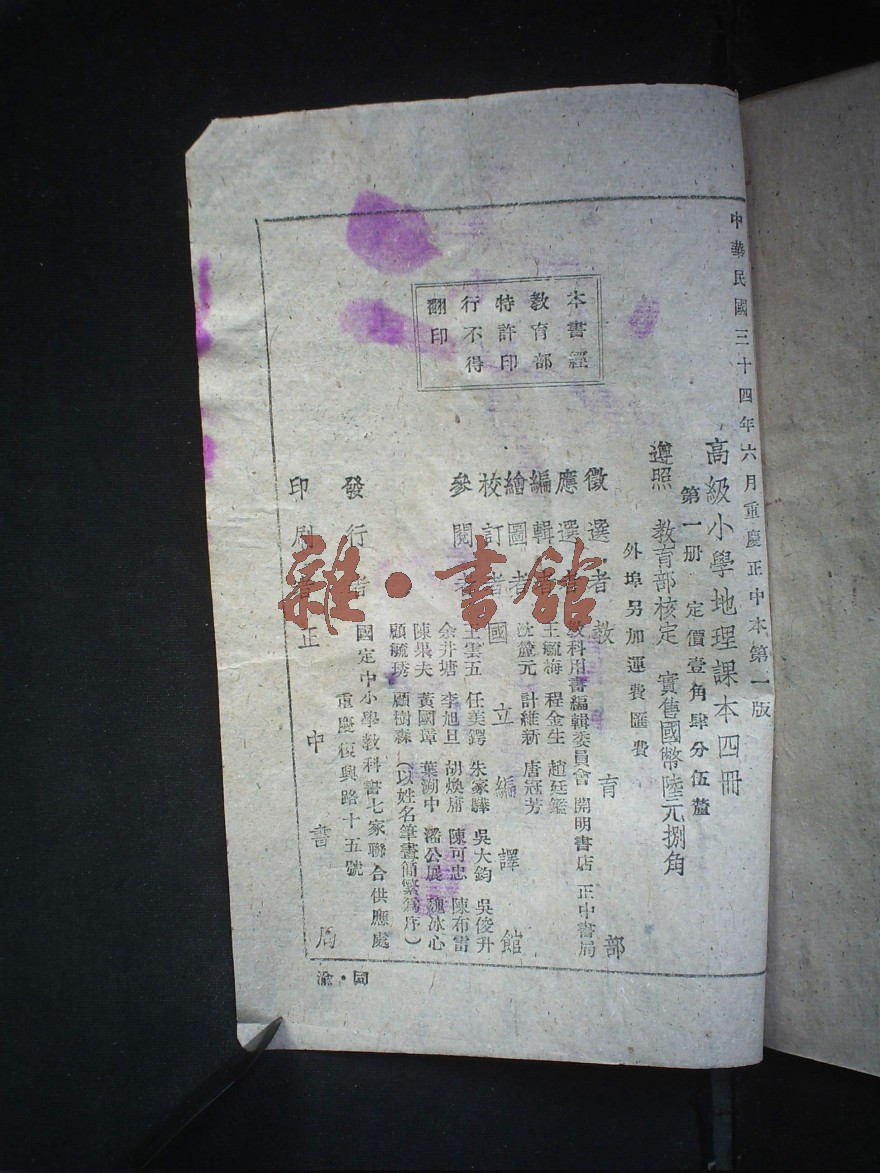 中華民國三十四年六月重慶正中本第一版
高級小學地理課本四冊
第一册 定價壹角肆分伍釐
遵照 教育部核定 實售國幣陸元捌角
外埠另加運費匯費
本書經
教育部
特許印
行不得
翻印
徵選者 教育部
應選者 教科用書編輯委員會 開明書店 正中書局
編輯者 王毓梅 程金生 趙廷鑑
繪圖者 沈麓元 計維新 唐冠芳
校訂者 國立編譯館
參閱者 王雲五 任美鍔 朱家驊 吳大鈞 吳俊升
余井塘 李旭旦 胡煥庸 陳可忠 陳布雷
陳果夫 黃國璋 葉溯中 潘公展 魏冰心
顧毓琇 顧樹森 (以姓名筆畫簡繁爲序)
發行者 國定中小學教科書七家聯合供應處
重慶復興路十五號
印刷者 正中書局
渝·同
雜·書館